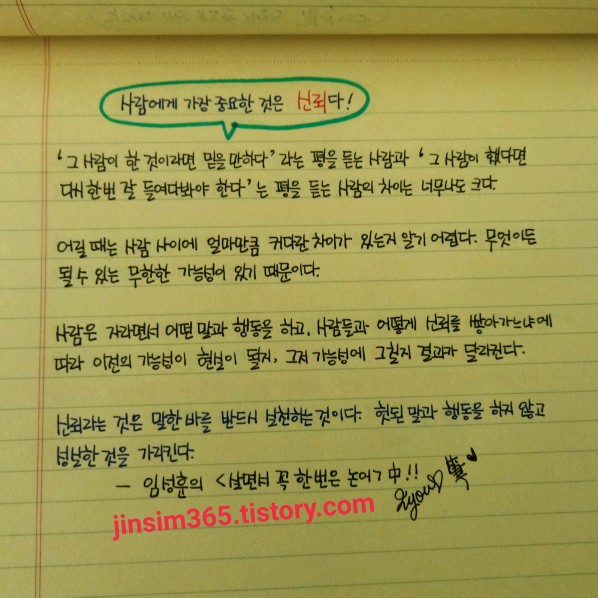 사람에게 가장 중요한 것은 신뢰다!
'그 사람이 한 것이라면 믿을 만하다'라는 평을 듣는 사람과 '그 사람이 했다면
다시 한번 잘 들여다봐야 한다'는 평을 듣는 사람의 차이는 너무나도 크다.
어릴 때는 사람 사이에 얼마만큼 커다란 차이가 있는지 알기 어렵다. 무엇이든
될 수 있는 무한한 가능성이 있기 때문이다.
사람은 자라면서 어떤 말과 행동을 하고, 사람들과 어떻게 신뢰를 쌓아가느냐에
따라 이전의 가능성이 현실이 될지, 그저 가능성에 그칠지 결과가 달라진다.
신뢰라는 것은 말한 바를 반드시 실천하는 것이다. 헛된 말과 행동을 하지 않고
성실한 것을 가리킨다.
- 임성훈의 <살면서 꼭 한번은 논어> 中..!!
jinsim365.tistory.com